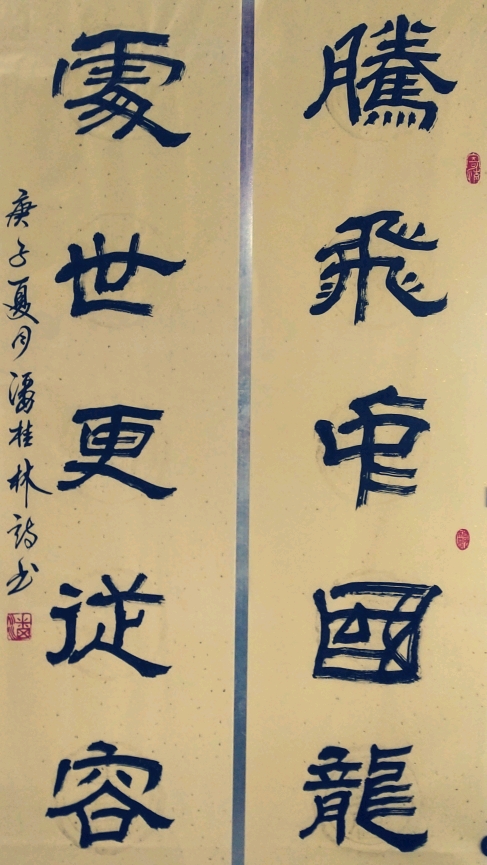 騰飛中國龍
處世更従容
庚子夏月潘桂林詩书